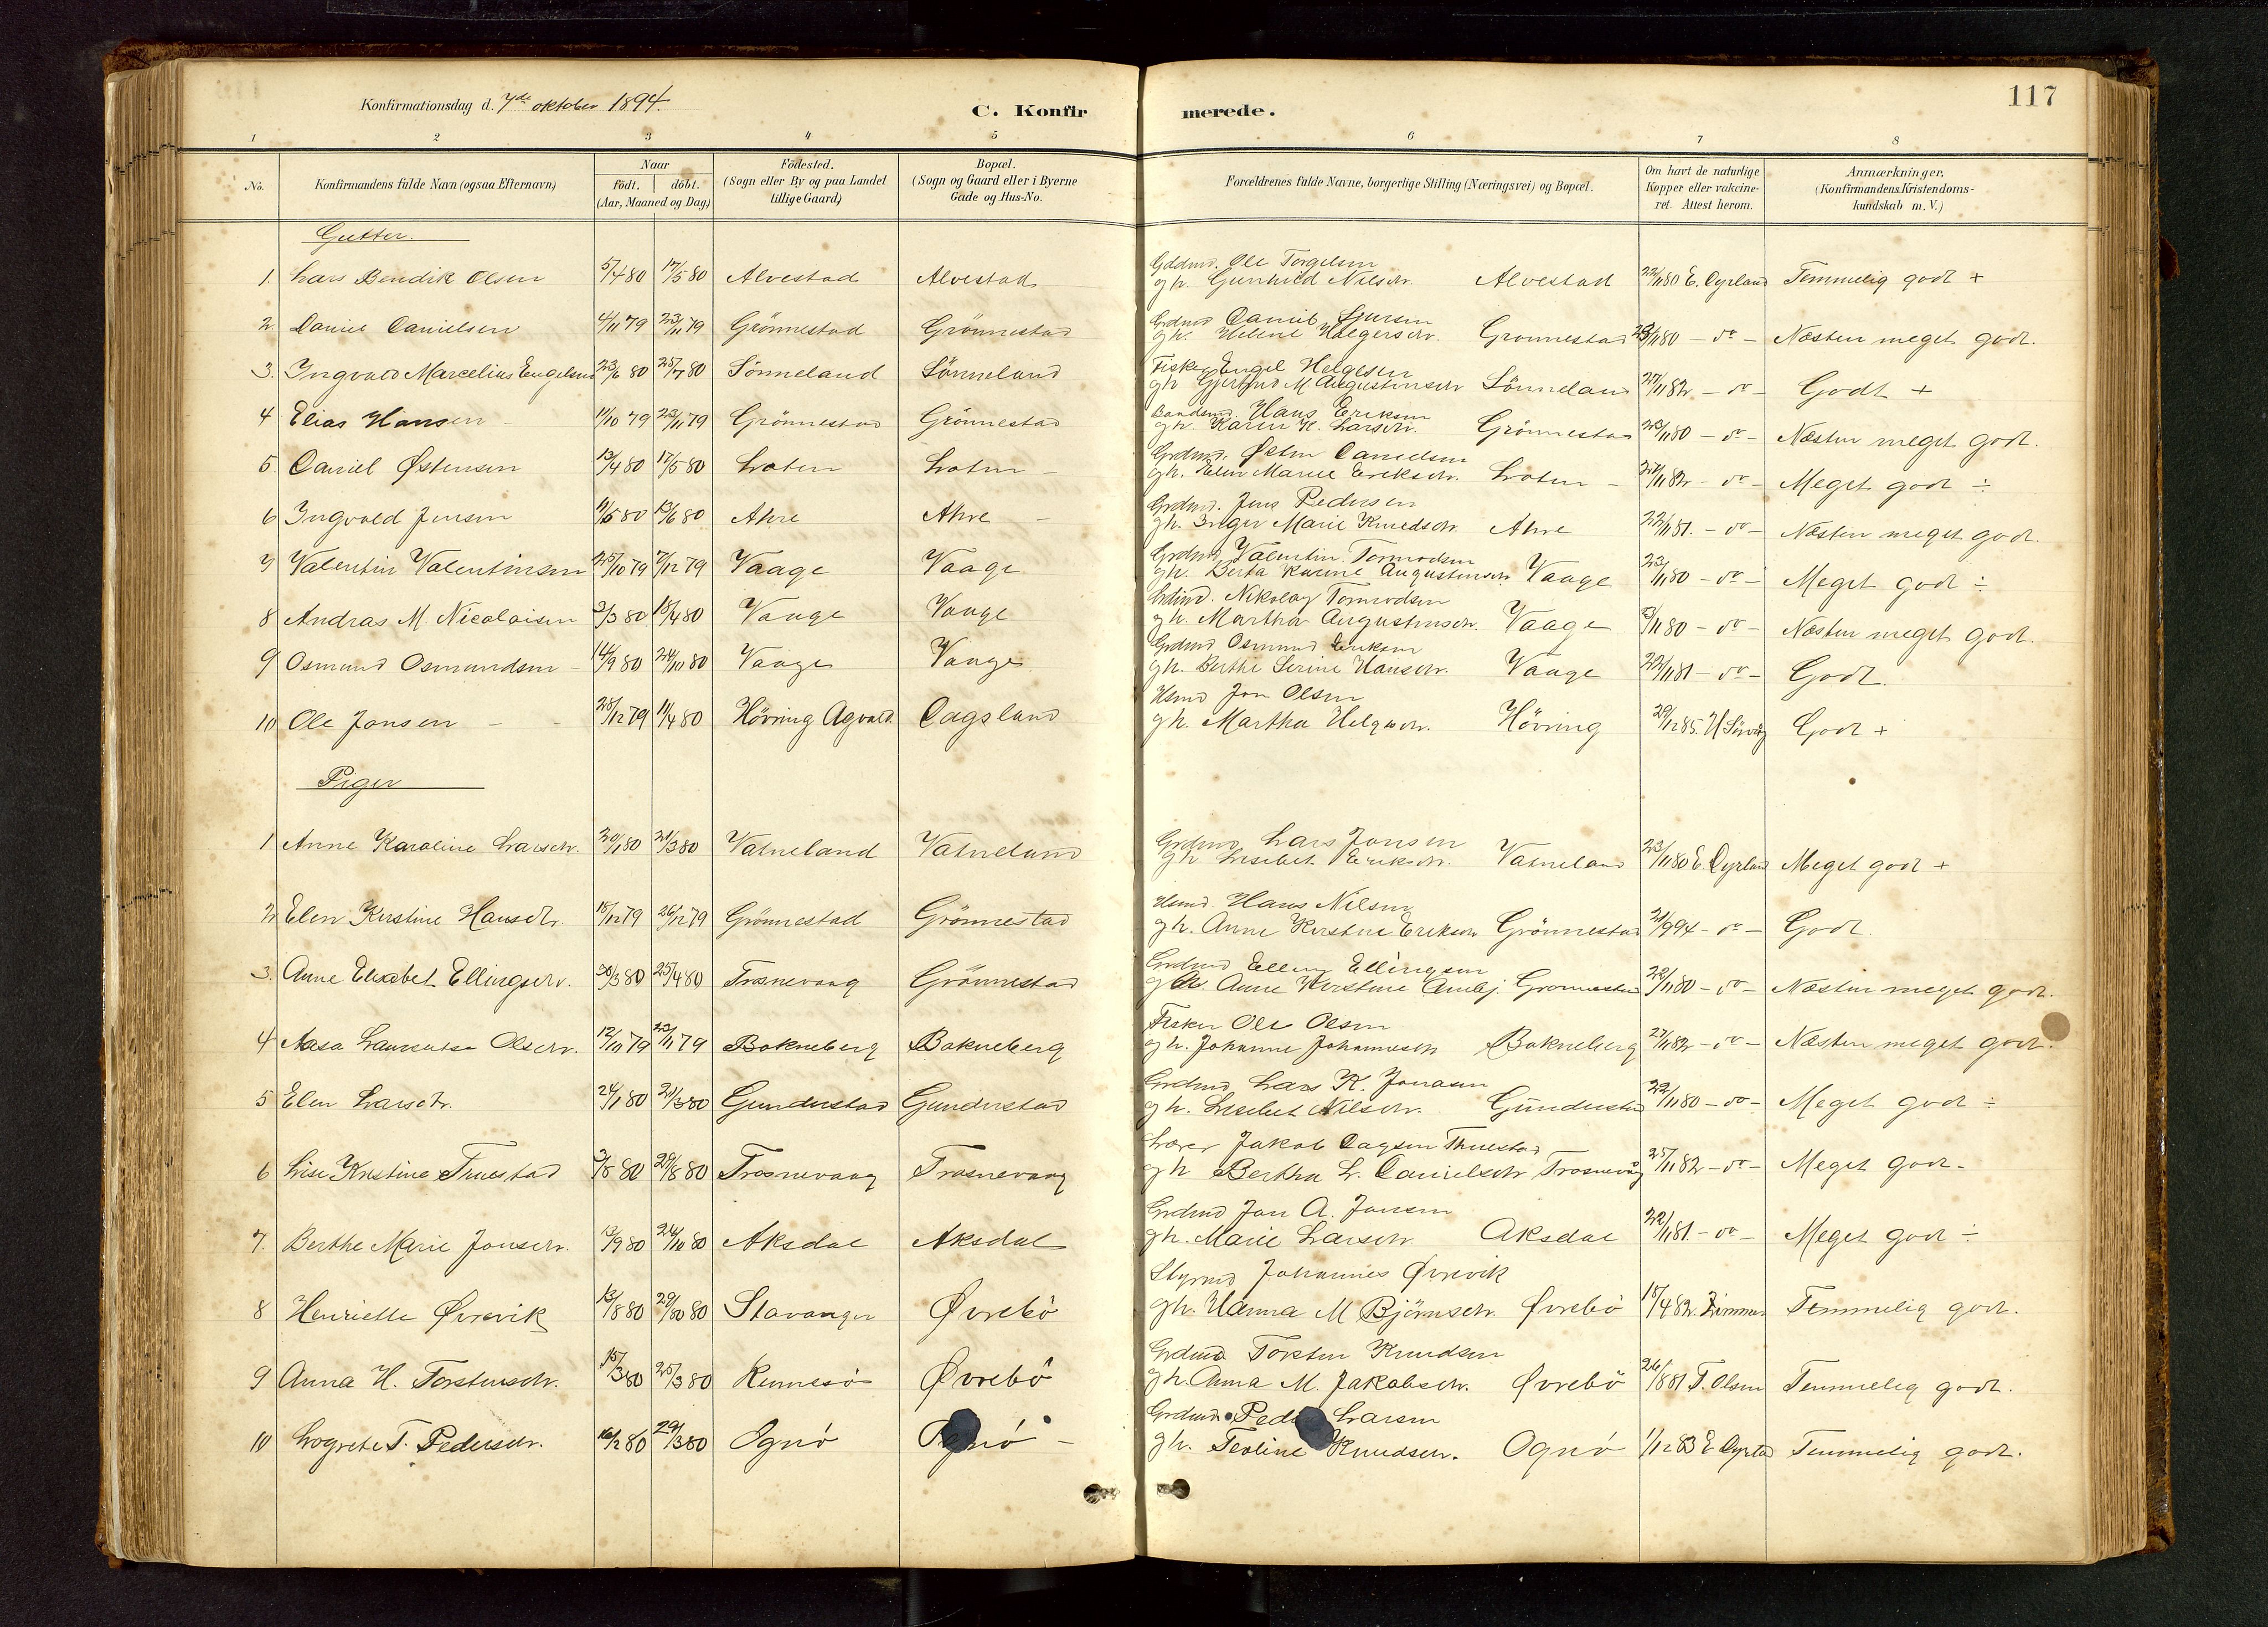 Konfirmationsdag d. 7de oktober 1894.
C. Konfirmerede.
117
1 2 3 4 5 6 7 8
No. Konfirmandens fulde Navn (ogsaa Efternavn) Naar födt. döbt. (Aar, Maaned og Dag) Födested. (Sogn eller By og paa Landet tillige Gaard) Bopæl. (Sogn og Gaard eller i Byerne Gade og Hus-No. Forældrenes fulde Navne, borgerlige Stilling (Næringsvei) og Bopæl. Om havt de naturlige Kopper eller vakcineret. Attest herom. Anmærkninger. (Konfirmandens Kristendomskundskab m. V.)
Gutter.
Gdmd. Ole Torgelsen
1. Lars Bendik Olsen 5/4 80 17/5 80 Alvestad Alvestad gh. Gunhild Nilsdr. Alvestad 22/11 80 E. Dyrland Temmelig godt +
Grdmd Daniel
2. Daniel Danielsen 4/11 79 23/11 79 Grönnestad Grönnestad gh. Helene Holgersdr. Gronnestad 23/11 80 - do - Næsten meget godt.
Fisker Engel Helgesen
3. Ingvald Marcelius Engelsen 23/6 80 25/7 80 Sönneland Sönneland gh Gjertrud M Augustinsdr Sönneland 27/11 82 - do - Godt +
Baadsmd. Hans Eriksen
4 Elias Hansen 11/10 79 23/11 79 Grönnestad Grönnestad gh. Karen K. Larsdr. Grönnestad 23/11 80 - do - Næsten meget godt.
Grdmd. Østen Danielsen
5. Daniel Østensen 13/4 80 17/5 80 Loten Loten gh. Elen Marie Eriksdr. Loten 27/11 82 - do - Meget godt ÷
Grdmd. Jens Pedersen
6 Ingvald Jensen 11/5 80 13/6 80 Ahre Ahre gh. Inger Marie Knudsdr. Ahre 22/11 81. - do - Næsten meget godt.
Grdmd Valentin Tormodsen
7 Valentin Valentinsen 25/10 79 7/12 79 Vaage Vaage gh. Berta Karine Augustinsdr. Vaage 23/11 80 - do - Meget godt ÷
Grdmd. Nikolay Tormodsen
8 Andras M. Nicolaisen 3/3 80 18/4 80 Vaage Vaage gh. Martha Augustinsdr. Vaage /11 80 - do - Næsten meget godt.
Grdmd Osmund Eriksen
9 Osmund Osmundsen 14/9 80 24/10 80 Vaage Vaage gh. Berthe Serine Hansdr. Vaage 22/11 81 - do - Godt.
Hsmd Jon Olsen
10 Ole Jonsen 28/12 79 11/4 80 Hövring Agvald. Dagsland gh. Martha Helgesdr. Hövring 29/12 85. Godt +
Piger
Grdmd Lars Jonsen
1 Anne Karoline Larsdr. 20/1 80 21/3 80 Vatneland Vatneland gh Lisebet Eriksdr. Vatneland 23/11 80 E. Dyrland Meget godt +
Hsmd. Hans Nilsen
2 Elen Kirstine Hansdtr. 18/12 79 26/12 79 Grönnestad Grönnestad gh. Anne Kirstine Eriksdr Grönnestad 21/9 94 - do - Godt.
Grdmd Elling Ellingsen
3. Anne Elisabet Ellingsdr. 30/3 80 25/4 80 Trosnevaag Grönnestad gh Anne Kirstine Gronnestad 22/11 80 - do - Næsten meget godt.
Fisker Ole Olsen
4 Aasa Laurentse Olsdr. 12/10 79 23/11 79 Bokneberg Bokneberg gh. Johanne Johannesdr Bokneberg 27/11 82 - do - Næsten meget godt.
Grdmd Lars K. Jonasen
5 Elen Larsdtr. 24/1 80 21/3 80 Gunderstad Gunderstad gh. Lisebet Nilsdr. Gunderstad 22/11 80 - do - Meget godt ÷
Lærer Jakob Dagsen Thuestad
6 Lise Kristine Thuestad 3/8 80 29/8 80 Trosnevaag Trosnevaag gh Bertha L. Danielsdtr Trosnevåg 25/11 82 - do - Meget godt -
Grdmd Jon A. Jonsen
7. Berthe Marie Jonsdr. 13/9 80 24/10 80 Aksdal Aksdal gh. Marie Larsdr Aksdal 22/11 81 - do - Meget godt ÷
Styrmd Johannes Øvrevik
8 Henriette Øvrevik 13/8 80 29/80 80 Stavanger Øvrebö gh. Hanna M Björnsdtr. Øvrebö 18/4 82. Zimmer Temmelig godt.
Grdmd Torsten Knudsen
9 Anna H. Torstensdtr. 15/3 80 25/3 80 Rennesö Øvrebö gh. Anna M. Jakobsdr. Øvrebö 26/8 81 T. Olsen Temmelig godt.
Grdmd Peder Larsen
10 Logrete T. Pedersdr. 16/2 80 29/3 80 Ognö Ognö gh. Teoline Knudsdr. Ognö 1/12 83 E Dyrla Temmelig godt.